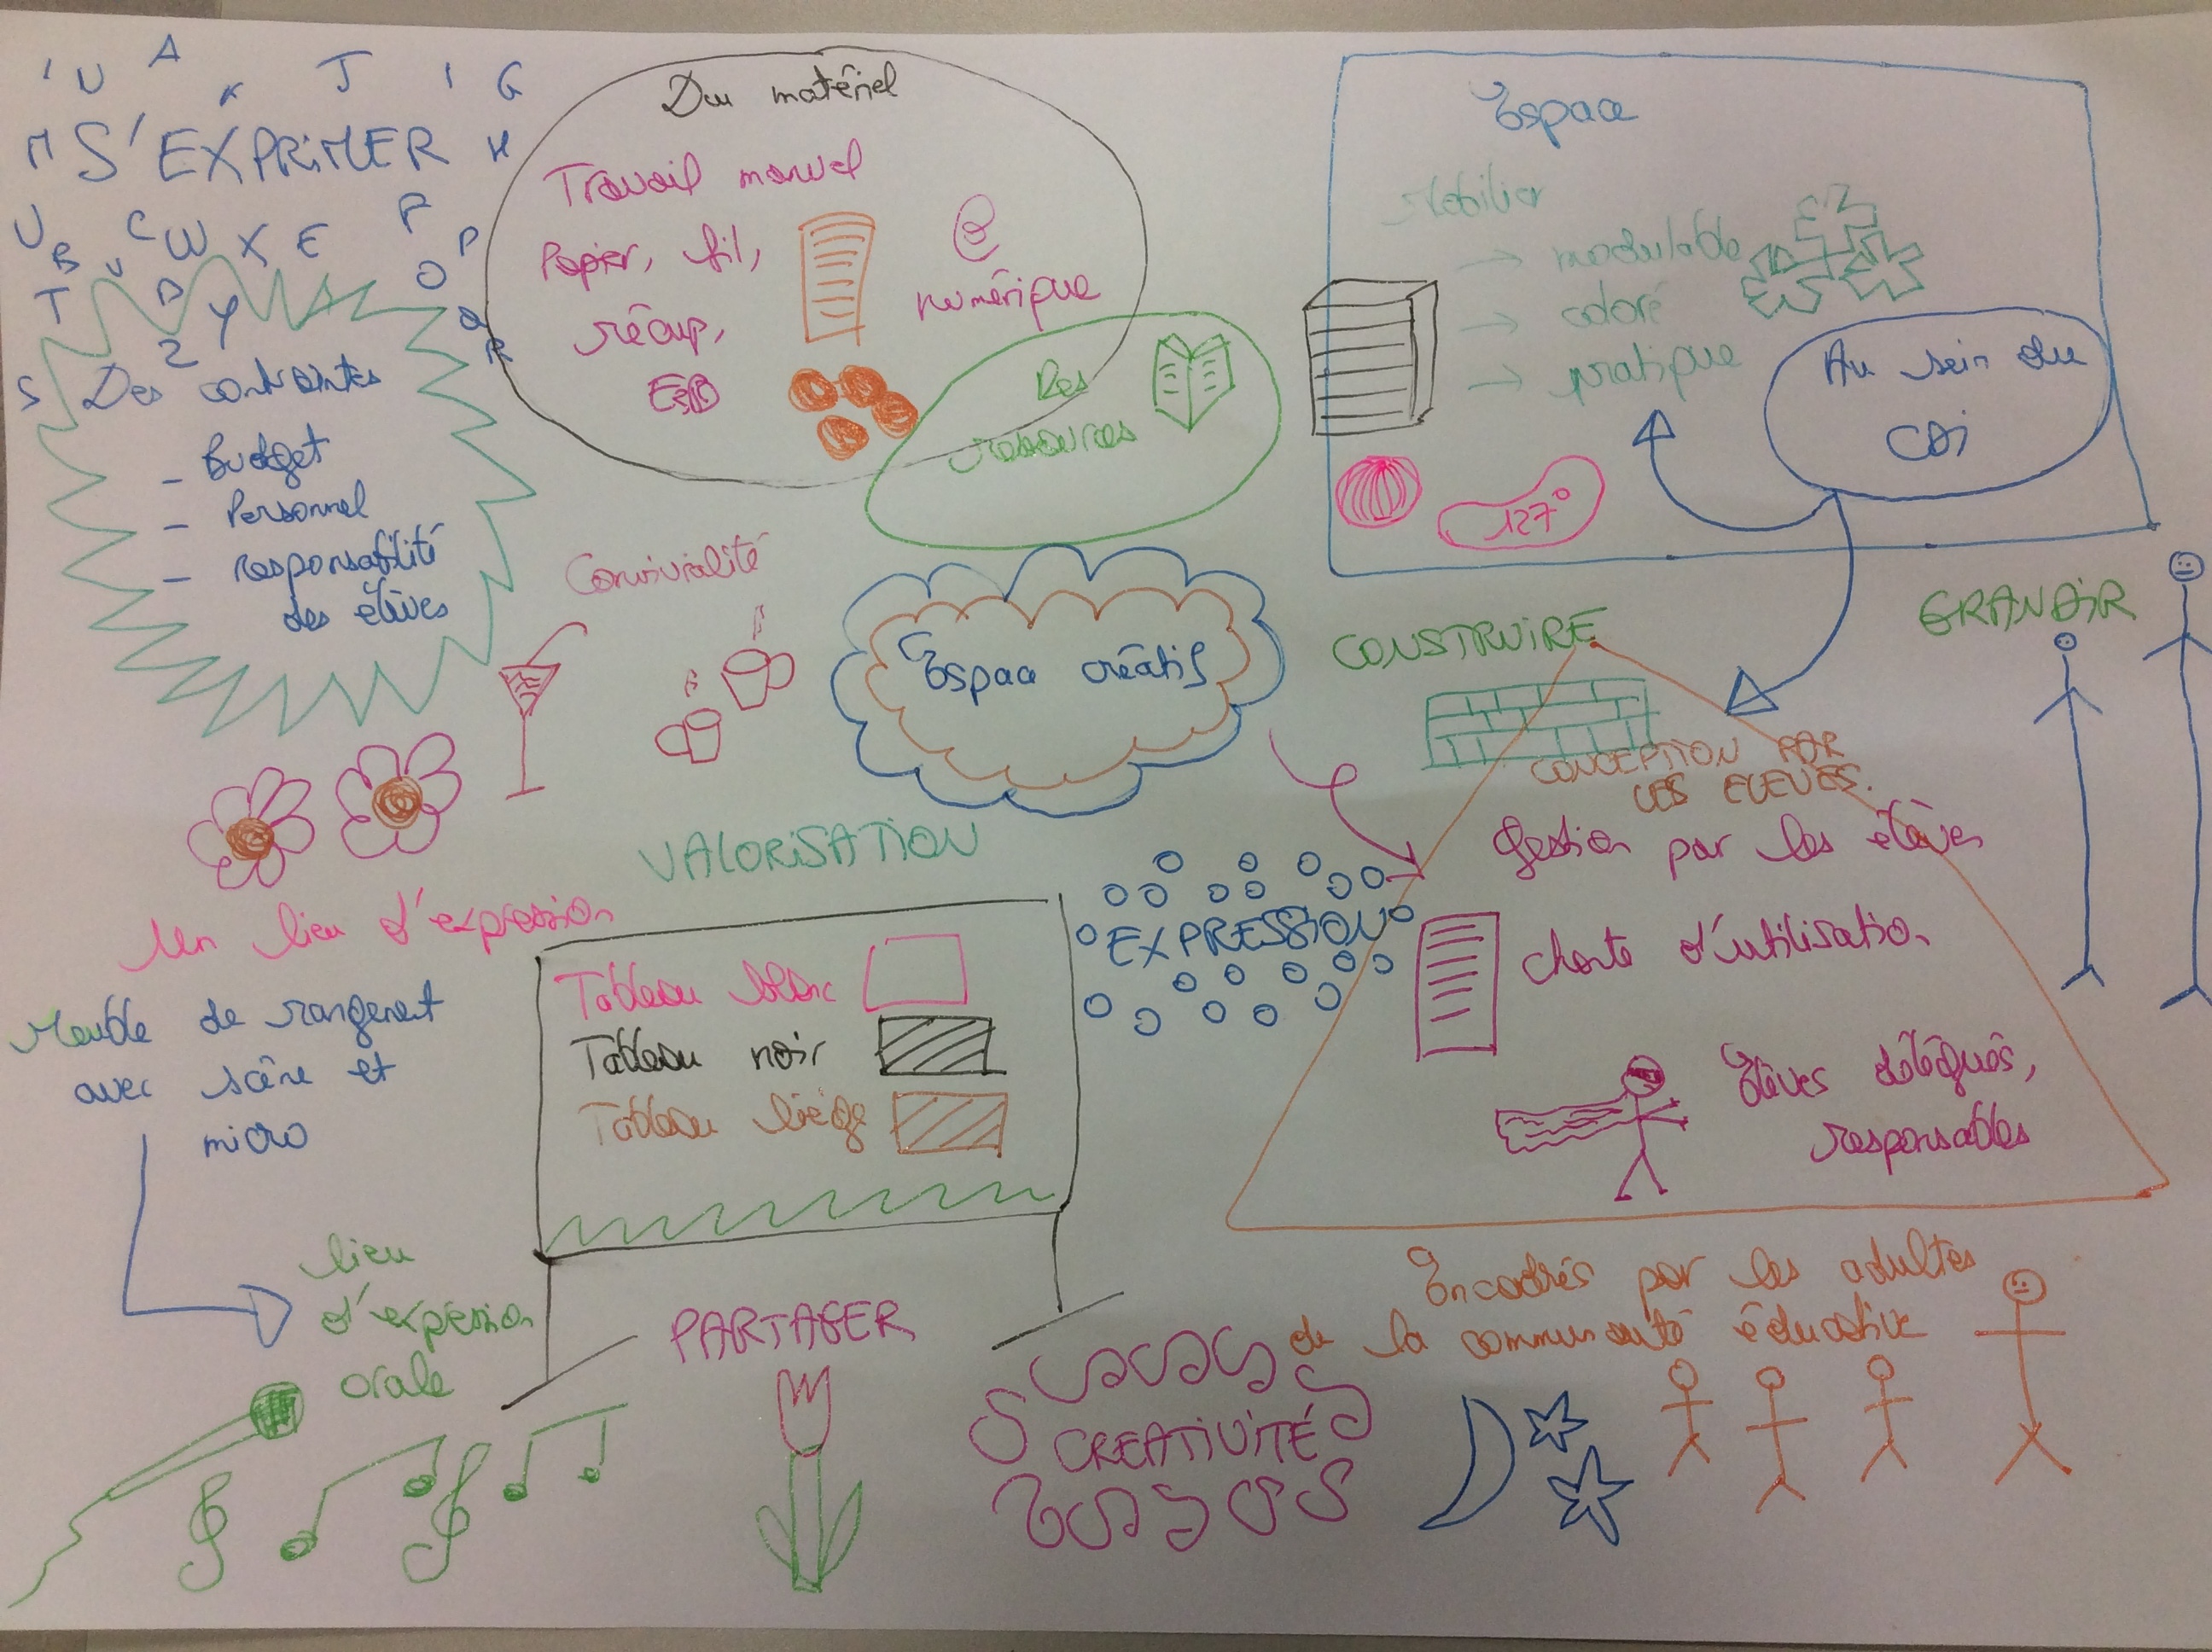 S'EXPRIMER
Des contraintes
- Budget
- Personnel
- responsabilité
des élèves
Du matériel
Travail manuel
Papier, fil,
récup,
numérique
Des
ressources
Espace
Mobilier
→ modulable
→ coloré
→ pratique
Au sein du
CDI
127°
Convivialité
Espace créatif
CONSTRUIRE
GRANDIR
CONCEPTION PAR
LES ELEVES.
Gestion par les élèves
charte d'utilisation
Elèves délégués,
responsables
VALORISATION
EXPRESSION
Un lieu d'expression
Tableau blanc
Tableau noir
Tableau liège
Meuble de rangement
avec scène et
micro
lieu
d'expression
orale
PARTAGER
CREATIVITÉ
Encadrés par les adultes
de la communauté éducative